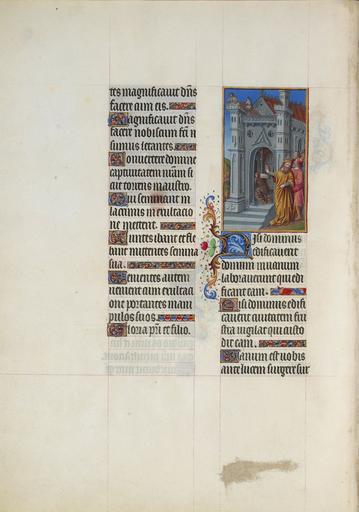 tes magnificavit dns
facere cum eis.
Magnificavit dns
facere nobiscum fcti
sumus letantes.
Convertere domine
captivitatem nram si
cut torrens in austro.
Qui seminant in
lacrimis in exultacio
ne metent.
Euntes ibant et fle
bant mittentes semina
sua.
Venientes autem
venient cum exultaci
one portantes mani
pulos suos.
Gloria pri et filio.
Nisi dominus
edificaverit
domum in vanum
laboraverunt qui edi
ficant eam.
Nisi dominus custodi
erit civitatem frus
tra vigilat qui custo
dit eam.
Vanum est vobis
ante lucem surgere sur